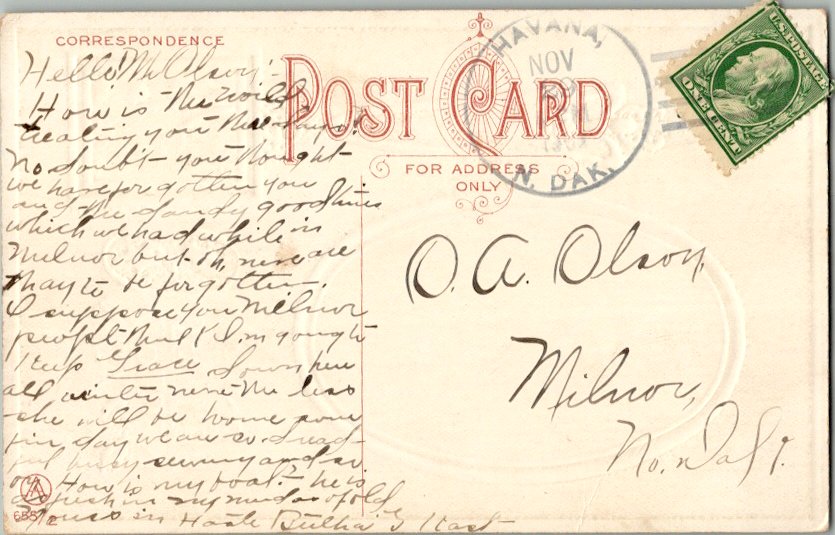 CORRESPONDENCE
POST CARD
FOR ADDRESS
ONLY
HAVANA,
NOV
N. DAK.
U.S. POSTAGE
ONE CENT
Hello Mr Olson;-
How is the world
treating you these days?
No doubt you thought
we have forgotten you
and the dandy good times
which we had while in
Milnor but oh, never are
they to be forgotten.
I suppose you Milnor
people think I'm going to
keep Grace down here
all winter never the less
she will be home some
fine day we are so dread-
ful busy sewing and so
on. How is my beau? he is
as fresh in my mind as of old
Yours in Haste Bertha G Kast
O. A. Olson,
Milnor,
No. Dak.